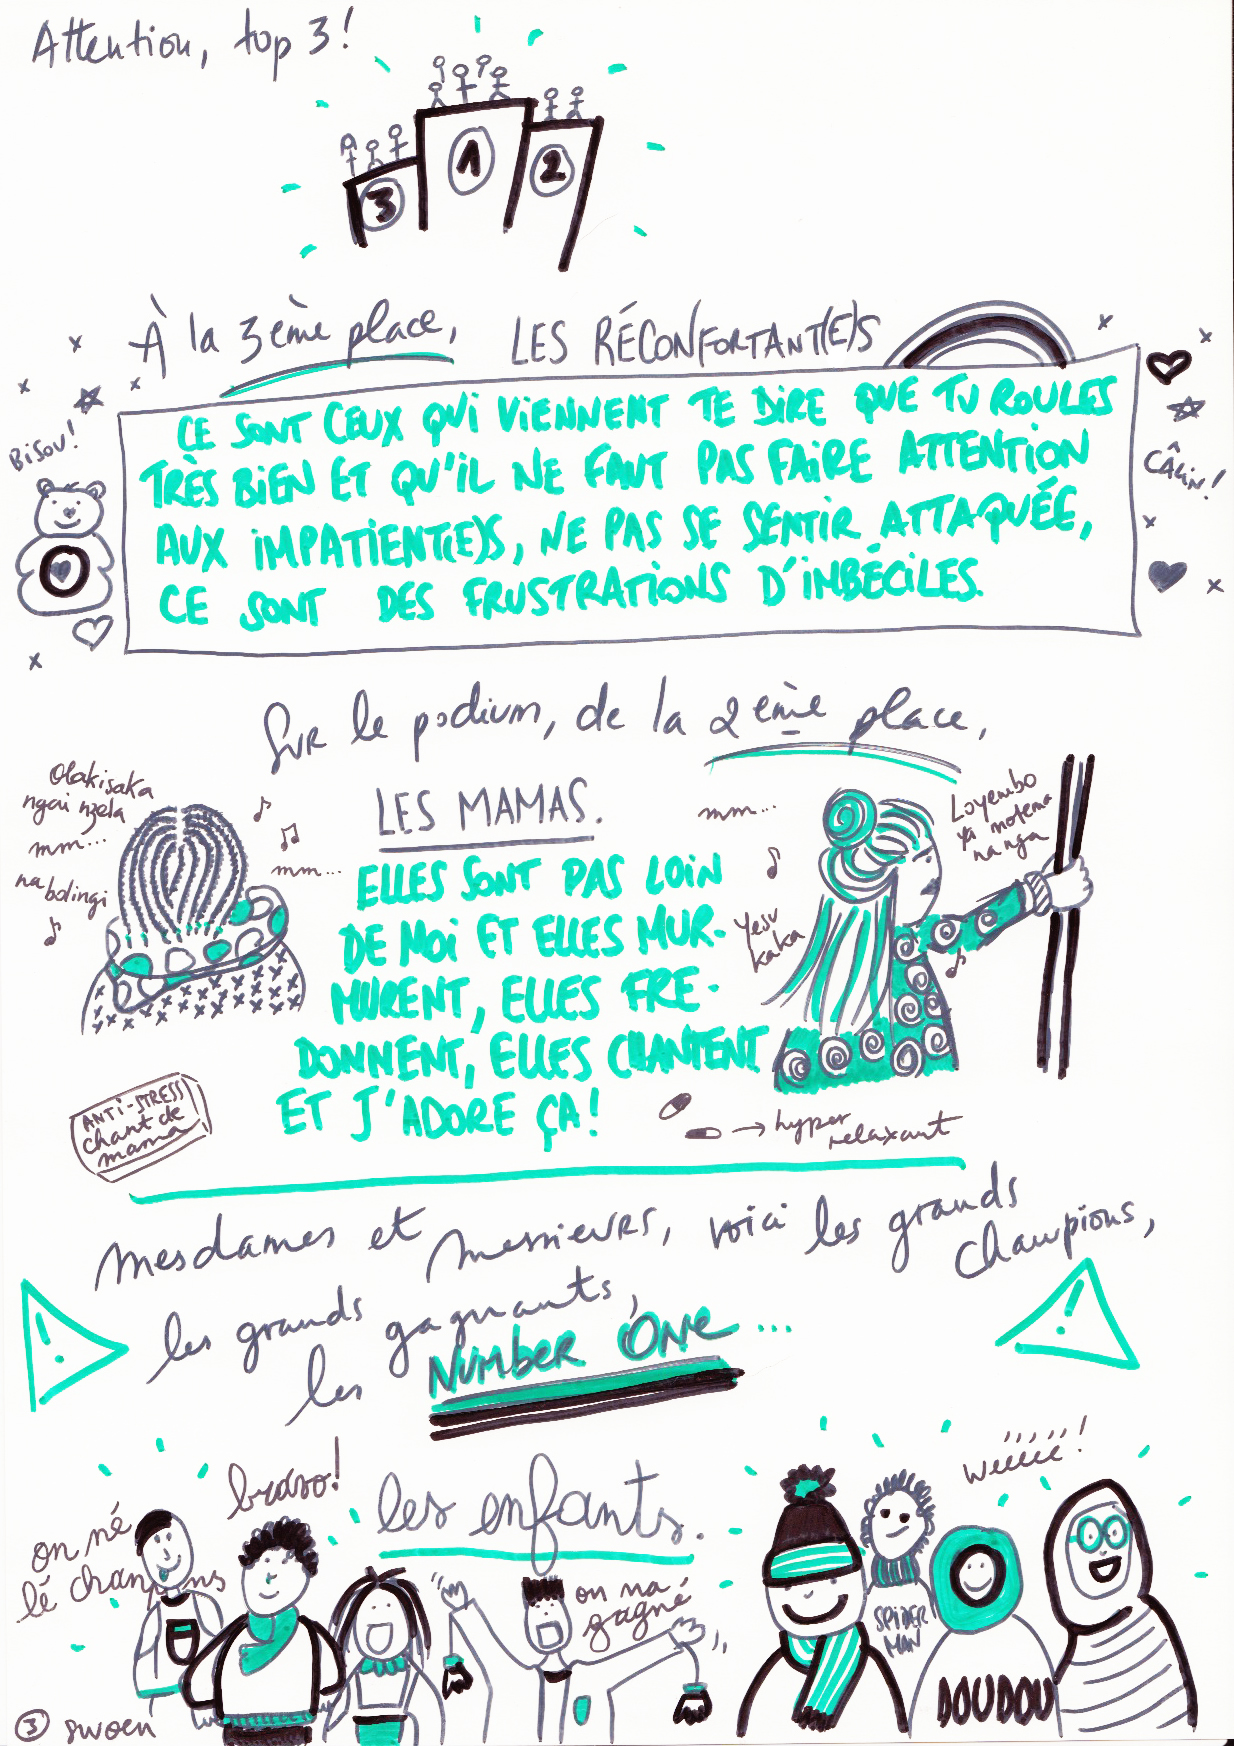 Attention, top 3!
3
1
2
À la 3ème place, LES RÉCONFORTANT(E)S
Bisou!
CE SONT CEUX QUI VIENNENT TE DIRE QUE TU ROULES
TRÈS BIEN ET QU'IL NE FAUT PAS FAIRE ATTENTION
AUX IMPATIENT(E)S, NE PAS SE SENTIR ATTAQUÉE,
CE SONT DES FRUSTRATIONS D'IMBÉCILES.
CÂLIN!
Sur le podium, de la 2ème place,
LES MAMAS.
Olakisaka
ngai nzela
mm...
na bolingi
mm...
ELLES SONT PAS LOIN
DE MOI ET ELLES MUR-
MURENT, ELLES FRE-
DONNENT, ELLES CHANTENT
ET J'ADORE ÇA!
mm...
Yesu
kaka
Loyembo
ya motema
na nga
ANTI-STRESS
chant de
mama
→ hyper
relaxant
Mesdames et messieurs, voici les grands
champions,
les grands gagnants,
les NUMBER ONE...
les enfants.
on né
lé champions
bravo!
on na
gagné
wéééé!
SPIDER
MAN
DOUDOU
3 swoen